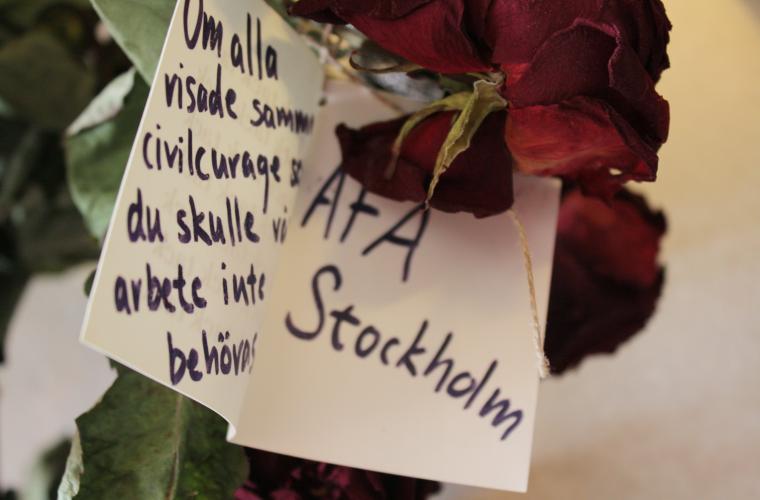 Om alla
visade samm
civilcurage s
du skulle v
arbete inte
behövas
AFA
Stockholm